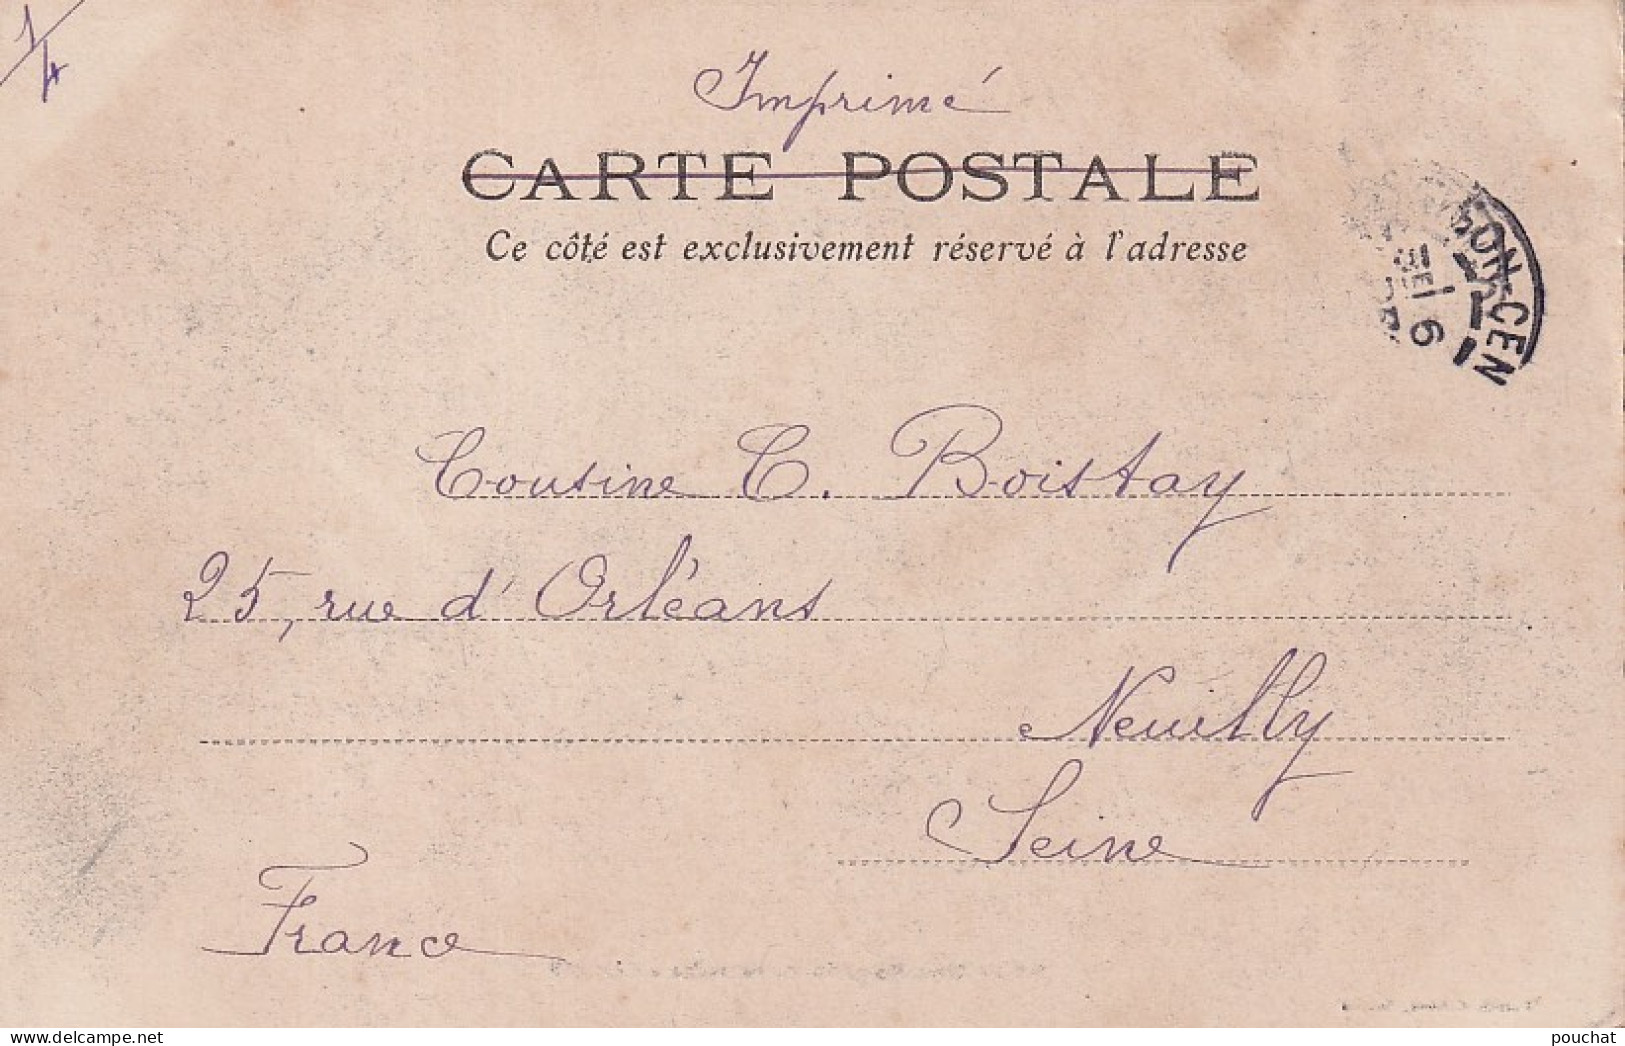 1/4
Imprimé
CARTE POSTALE
Ce côté est exclusivement réservé à l'adresse
ON-CEN
6
Cousine C. Boistay
25, rue d'Orléans
Neuilly
Seine
France
www.delcampe.net
pouchat